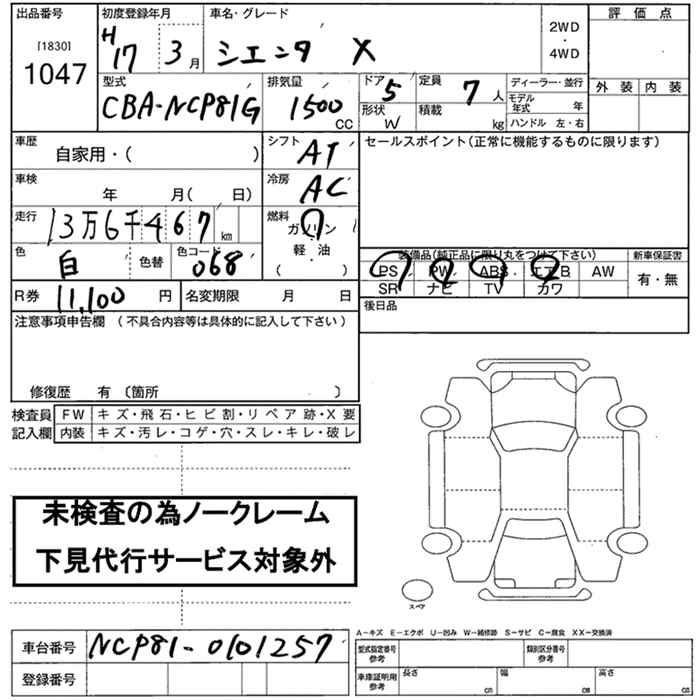 出品番号 初度登録年月 車名・グレード 評価点
[1830] H17 3月 シエンタ X 2WD・4WD
1047
型式 排気量 ドア 5 定員 7人 ディーラー・並行 外装 内装
CBA-NCP81G 1500CC 形状 W 積載 kg モデル年式 年
ハンドル 左・右
車歴 自家用・( ) シフト AT セールスポイント(正常に機能するものに限ります)
車検 年 月( 日) 冷房 AC
走行 13万6千467km 燃料 ガソリン・軽・油 ( )
色 白 色替 色コード 068 装備品(純正品に限り丸をつけて下さい) 新車保証書
PS PW ABS エアB AW 有・無
R券 11,100円 名変期限 月 日 SR ナビ TV カワ
注意事項申告欄 (不具合内容等は具体的に記入して下さい) 後日品
修復歴 有〔箇所 〕
検査員 FW キズ・飛石・ヒビ割・リペア跡・X要
記入欄 内装 キズ・汚レ・コゲ・穴・スレ・キレ・破レ
未検査の為ノークレーム
下見代行サービス対象外
スペア
A-キズ E-エクボ U-凹み W-補修跡 S-サビ C-腐食 XX-交換済
車台番号 NCP81-0101257 型式指定番号 参考 類別区分番号 参考
登録番号 車庫証明用 参考 長さ cm 幅 cm 高さ cm